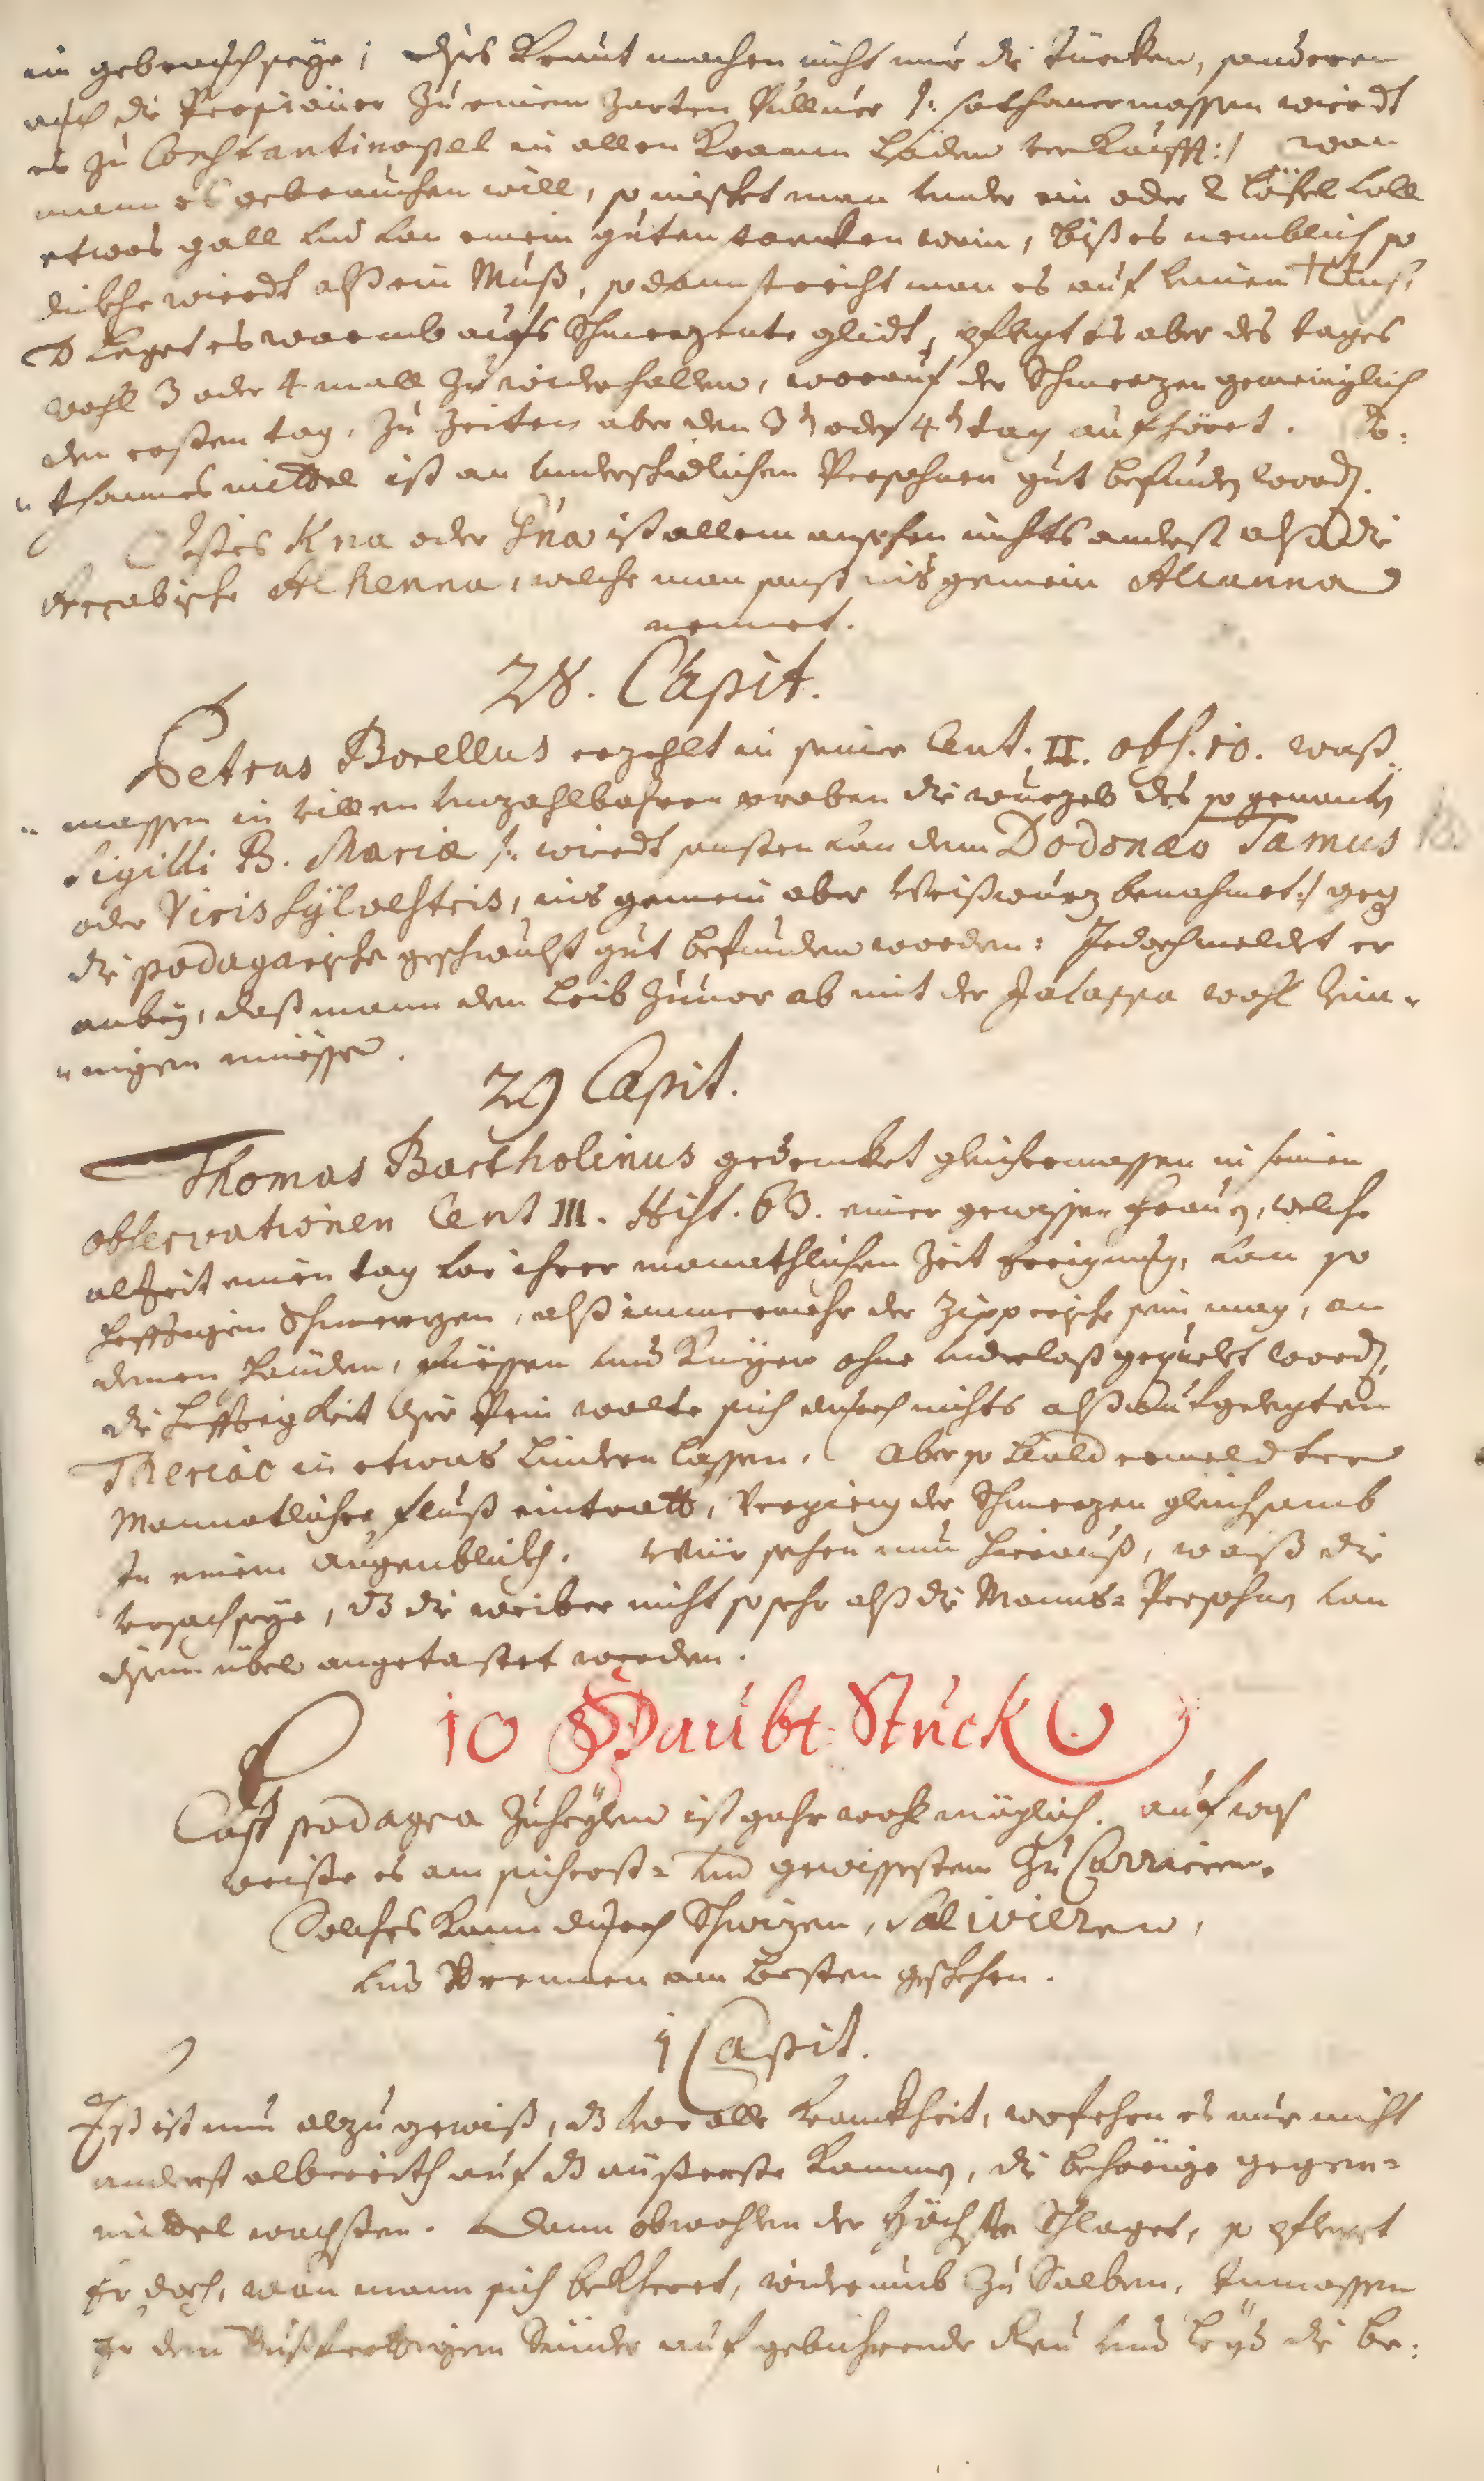 im gebrauch seye; dises Kraut machen nicht nur die Türcken, sonderen
auch die Persianer zu einem zarten Pulluer /: sothanermassen wierdt
es zu Constantinopel in allen Kramm Läden verkaufft:/ wan
mann es gebrauchen will, so mischet man under ein oder 2 Löfel voll
etwas gall und von einem guten wein, biß es nemblich so
dickhe wierdt alß ein Muß, sodann streicht man es auf linen Tuch,
leget es warmb aufs Schmerzente glidt, pflegt es aber des tages
wohl 3 oder 4 mall zu widerhollen, worauf der Schmerzen gemeiniglich
den ersten tag, zu Zeiten aber den 3t oder 4t tag aufhöret. So:
thannes mittel ist an underschidlichen Persohnen gut befunden word.
Dises Kna oder Hna ist allem ansehen nichts anderst alß die
Arrabische Alkenna, welche man sonst ins gemein Alcanna
nennet.
28. Capit.
Petrus Borellus erzehlt in seiner Cent. II. obs. 10. waß-
massen in villen unzahlbahren proben die wurzel des so genanten
Sigilli B. Mariæ /: wierdt sonsten von dem Dodonæo Tamus
oder Vitis sÿlvestris, ins gemein aber Weißwurz benahmet:/ geg
die podagarische geschwulst gut befunden worden: Jedoch meldet er
anbey, daß mann den Leib zuuor ab mit der Jalappa wohl rein-
nigen müesse.
29 Capit.
Thomas Bartholinus gedencket gleichermassen in seinen
observationen Cent III. Hist. 63. einer gewissen frauen, welche
alzeit einen tag vor ihrer monathlichen Zeit Ereignung, von so
hefftigen Schmerzen, alß immermehr der Zipperische sein mag, an
denen händen, füessen und Knÿen ohne underlaß gequelt word,
die hefftigkeit diser Pein wolte sich durch nichts alß aufgelegten
Theriac in etwas linderen lassen. Aber so bald ermeldter
Monnatlicher fluß eintratt, vergieng der Schmerzen gleichsamb
In einem augenblickh. Wür sehen nun hierauß, waß die
ursach seye, dz die weiber nicht so sehr alß die Manns-Persohnen von
disem übel angetastet werden.
10 Haubt: Stuck
Das podagra zuheylen ist gahr wohl möglich. auf was
weiße es am sicherst- und gewissesten zu Currieren.
Solches kann durch Schwizen, Salivieren,
und Brennen am besten geschehen.
1 Capit.
Eß ist nun alzu gewiß, dz vor alle Kranckheit, wofehrn es nur nicht
anderst albereith auf dz äußerste kommen, die behörige gegen-
mittel wachsten. Dann obwohlen der Höchste Schlaget, so pfleget
Er doch, wan mann sich bekheret, widerumb zu Salben, Inmassen
Er dem Bußfertigem Sünder auf gebührende Reu und Leyd die be: